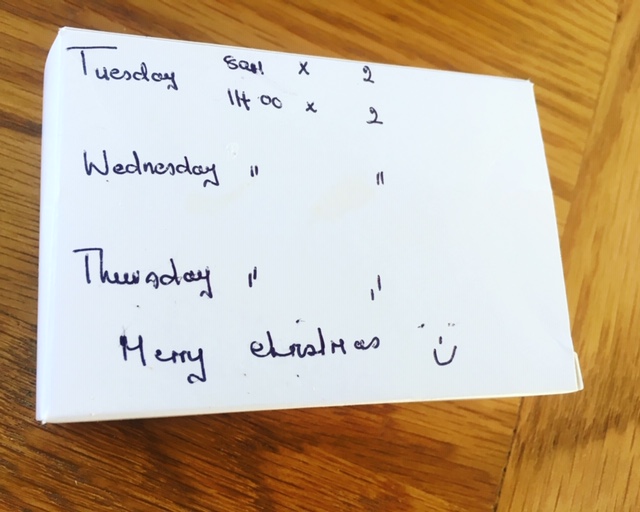 Tuesday 8am x 2
14 00 x 2
Wednesday " "
Thursday " "
Merry christmas